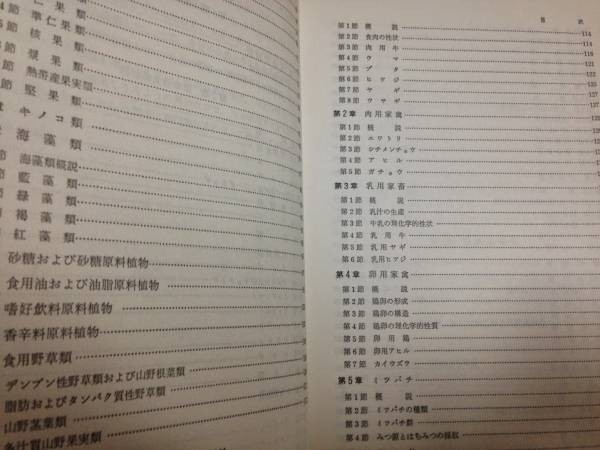 仁果類
準仁果類
核果類
漿果類
節 熱帯産果実類
節 堅果類
キノコ類
海藻類
節 海藻類概説
節 藍藻類
緑藻類
褐藻類
紅藻類
砂糖および砂糖原料植物
食用油および油脂原料植物
嗜好飲料原料植物
香辛料原料植物
食用野草類
デンプン性野草類および山野根菜類
脂肪およびタンパク質性野草類
山野茎葉類
多汁質山野果実類
目次
第1節 概説 114
第2節 食肉の性状 114
第3節 肉用牛 116
第4節 ウマ 121
第5節 ブタ 122
第6節 ヒツジ 125
第7節 ヤギ 127
第8節 ウサギ 127
第2章 肉用家禽
第1節 概説
第2節 ニワトリ
第3節 シチメンチョウ
第4節 アヒル
第5節 ガチョウ
第3章 乳用家畜
第1節 概説
第2節 乳汁の生産
第3節 牛乳の理化学的性状
第4節 乳用牛
第5節 乳用ヤギ
第6節 乳用ヒツジ
第4章 卵用家禽
第1節 概説
第2節 鶏卵の形成
第3節 鶏卵の構造
第4節 鶏卵の理化学的性質
第5節 卵用鶏
第6節 卵用アヒル
第7節 カイウズラ
第5章 ミツバチ
第1節 概説
第2節 ミツバチの種類
第3節 ミツバチ群
第4節 みつ源とはちみつの採収